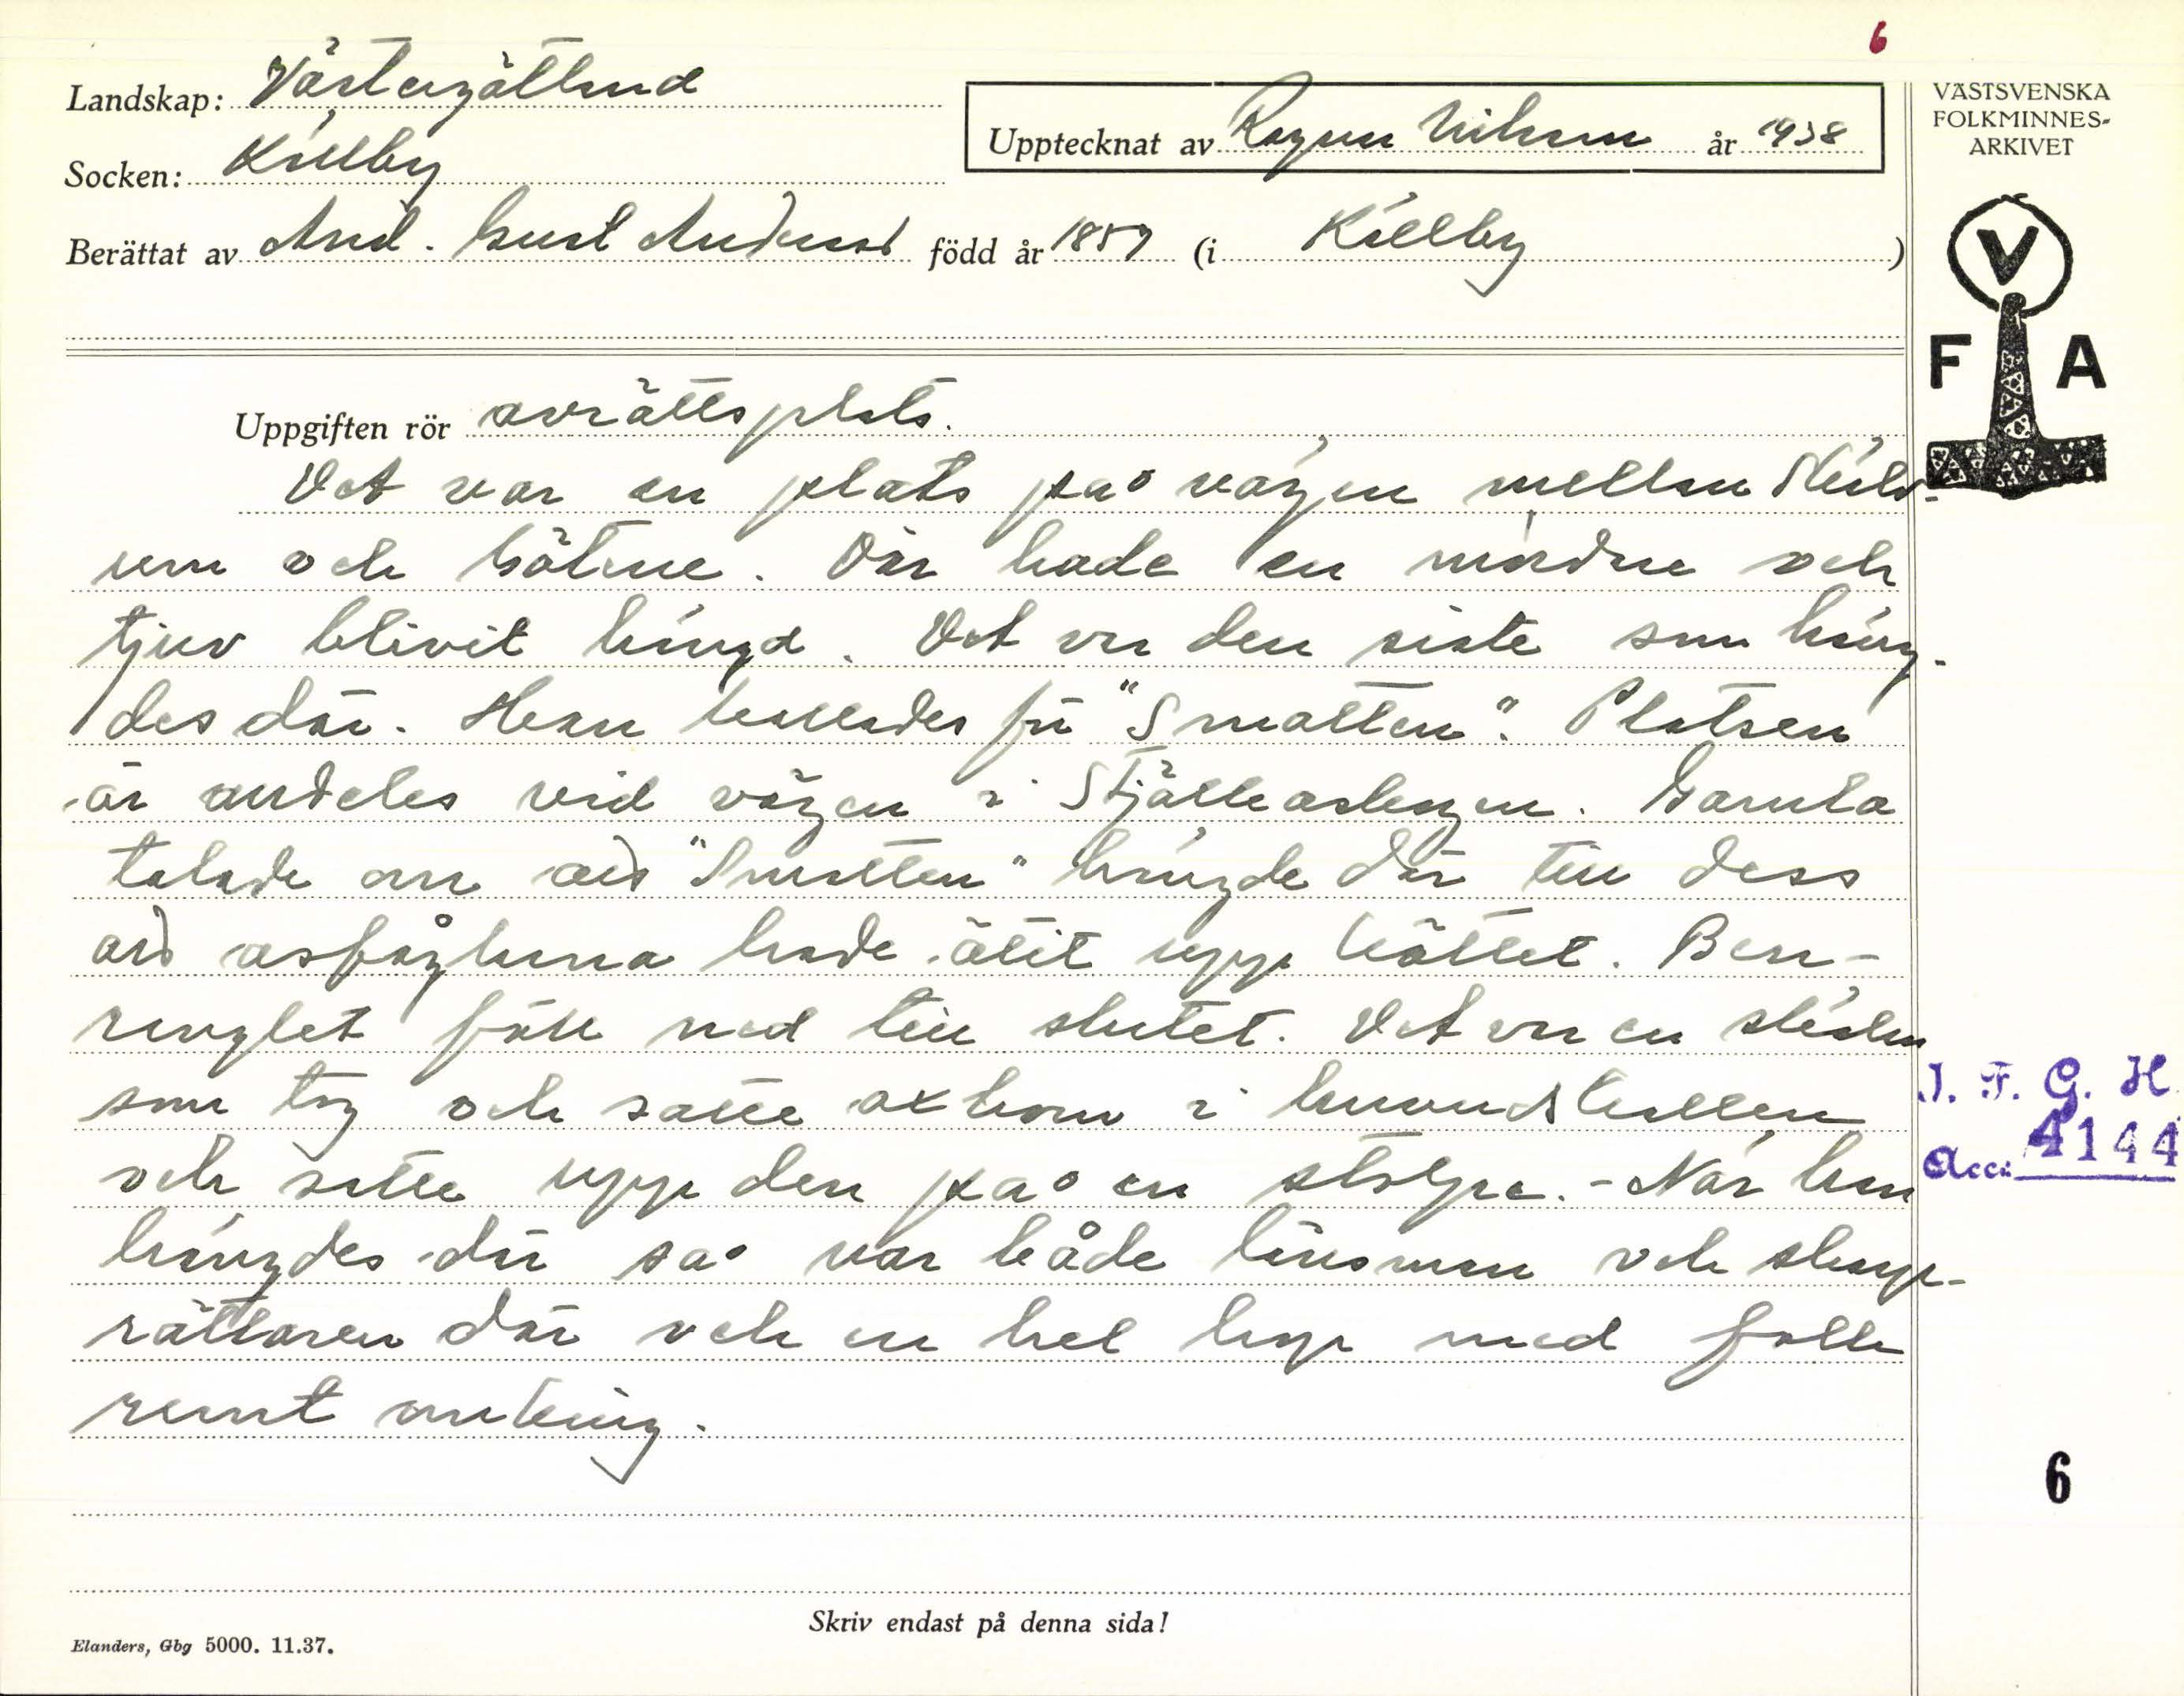 6
Landskap: Västergötland
Socken: Källby
Upptecknat av Ragnar Nilsson år 1938
Berättat av And. Gust Anderss född år 1857 (i Källby)
VÄSTSVENSKA
FOLKMINNES-
ARKIVET
V
F A
Uppgiften rör avrättsplats.
Det var en plats på vägen mellan
um och Götene. Där hade en mördare och
tjuv blivit hängd. Det var den siste som häng-
des där. Han kallades för "Smatten". Platsen
är alldeles vid vägen i. Gamla
talade om att "Smatten" hängde där till dess
att asfåglarna hade ätit upp köttet. Ben-
ranglet föll ned till slutet. Det var en
som tog och satte axlarna i
och satte upp den på en stolpe. - När han
hängdes där så var både länsman och skarp-
rättaren där och en hel hop med folk
runt omkring.
I. F. G. H.
Acc. 4144
6
Skriv endast på denna sida!
Elanders, Gbg 5000. 11.37.